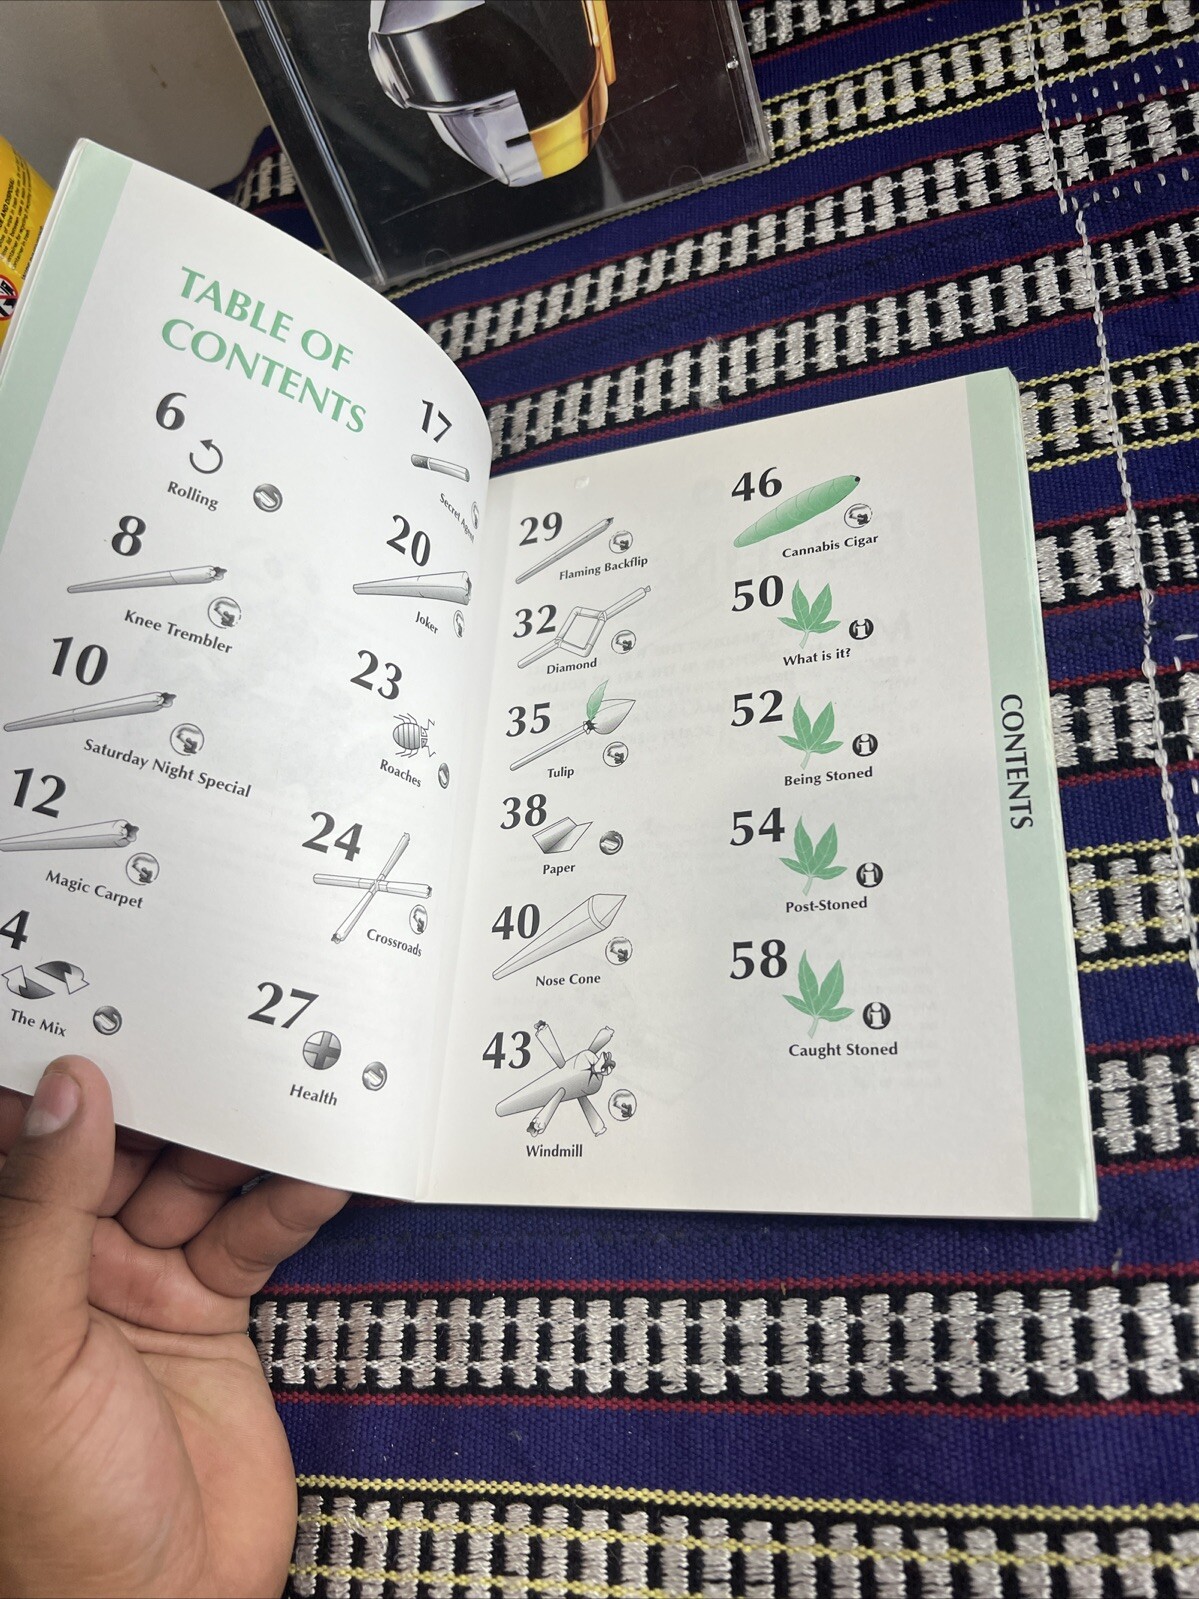 TABLE OF
CONTENTS
6
Rolling
8
Knee Trembler
10
Saturday Night Special
12
Magic Carpet
4
The Mix
17
Secret Agent
20
Joker
23
Roaches
24
Crossroads
27
Health
29
Flaming Backflip
32
Diamond
35
Tulip
38
Paper
40
Nose Cone
43
Windmill
46
Cannabis Cigar
50
What is it?
52
Being Stoned
54
Post-Stoned
58
Caught Stoned
CONTENTS